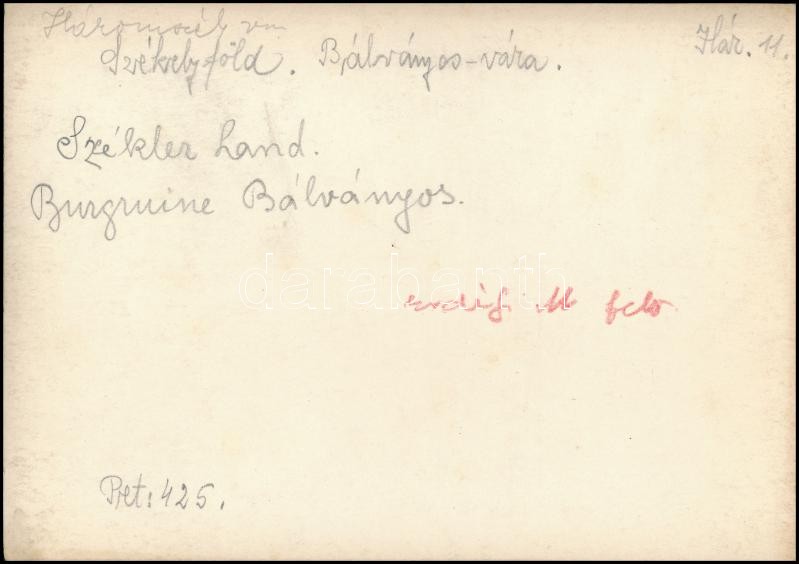 Háromszék vm
Székelyföld. Bálványos-vára.
Hár. 11.
Székler Land.
Burgruine Bálványos.
darabanth
M felv
Ret: 425.